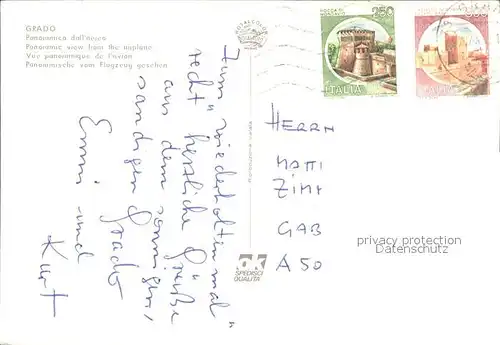 GRADO
Panoramica dall'aereo
Panoramic view from the airplane
Vue panoramique de l'avion
Panoramische vom Flugzeug gesehen
Zum "wiederholten mal"
recht herzliche Grüße
aus dem sonnigen,
sandigen Grado
Emmi und
Kurt
250
ITALIA
HERRN
MATTI
ZIMT
GAB
A 50
privacy protection
Datenschutz
SPEDISCI
QUALITÀ